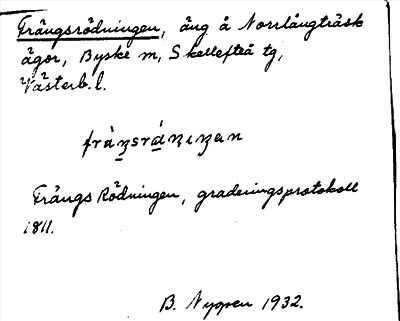 Frångsrödningen, äng å Norrlångträsk
ägor, Byske sn, Skellefteå tg,
Västerb. l.
Frångs Rödningen, graderingsprotokoll
1811.
B. Nygren 1932.